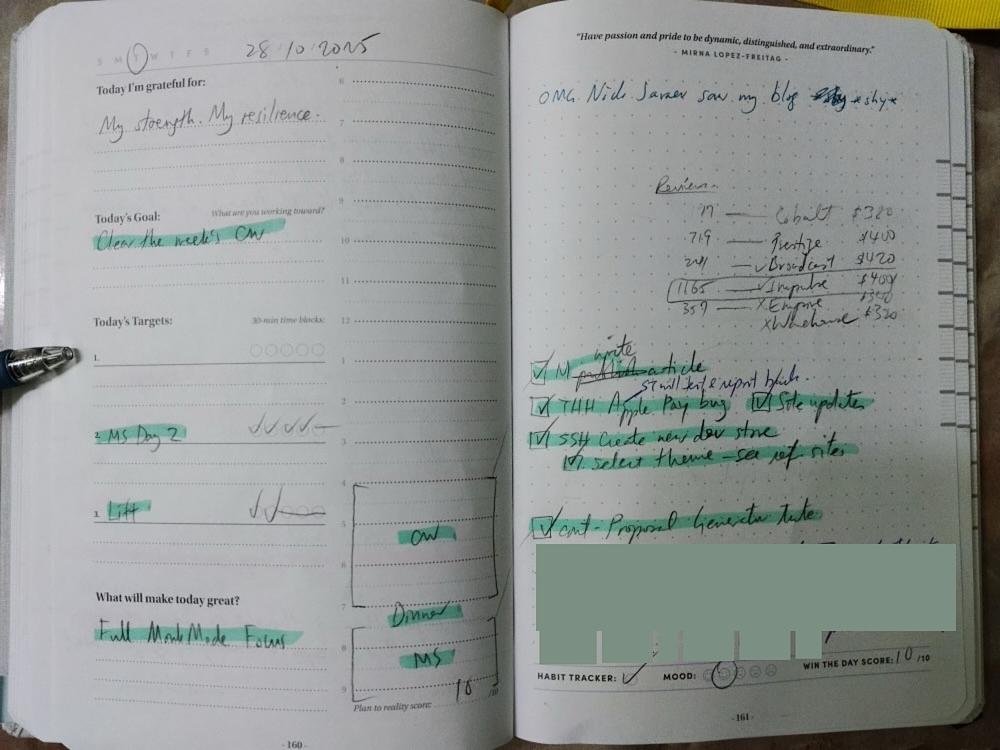 S M T W T F S 28/10/2025
Today I'm grateful for:
My strength. My resilience.
Today's Goal: What are you working toward?
Clear the week's CW
Today's Targets: 30-min time blocks:
1.
2. MS Day 2
3. Lift
What will make today great?
Full Monk Mode Focus
6
7
8
9
10
11
12
1
2
3
4
5
CW
6
7
Dinner
8
MS
9
Plan to reality score: 10 /10
- 160 -
"Have passion and pride to be dynamic, distinguished, and extraordinary."
- MIRNA LOPEZ-FREITAG -
OMG. Nick saw my blog *shy*
Reviews
17 — Cobalt $320
719 — Prestige $400
✓ Broadcast $420
1165 — ✓ Impulse $400
359 — X Empire
X Warehouse $320
write
M article
still write report back.
THH Apple Pay bug Site updates
SSH Create new dev store
select theme - see ref sites
cont - Proposal Generator tute
HABIT TRACKER: MOOD: WIN THE DAY SCORE: 10 /10
- 161 -